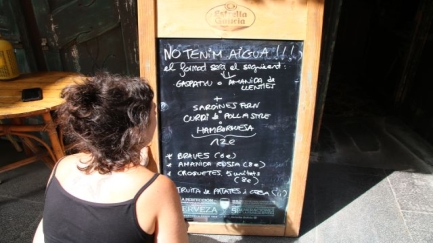 Estrella
Galicia
NO TENIM AIGUA!!!
el format serà el següent:
GASPATXU o AMANIDA DE
LLENTIES
+
SARDINES FORN
CURRI DE POLLASTRE
o
HAMBURGUESA
12€
* BRAVES
* AMANIDA RUSSA (8€)
* CROQUETES, 5 unitats
(8€)
TRUITA DE PATATES
CERVEZA